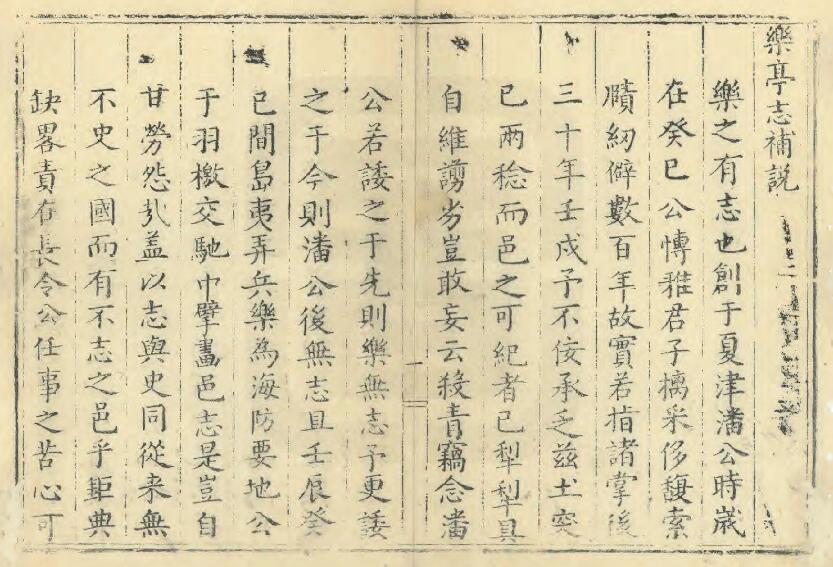 樂亭志補説
樂之有志也創于夏津潘公時嵗
在癸巳公愽雅君子摛采侈馥索
賾紉僻數百年故實若指諸掌後
三十年壬戌予不佞承乏兹土突
已兩稔而邑之可紀者已犁犁具
自維謭劣豈敢妄云殺青竊念潘
公若諉之于先則樂無志予更諉
之于今則潘公後無志且壬辰癸
巳間島夷弄兵樂為海防要地公
于羽檄交馳中擘畫邑志是豈自
甘勞怨㢤盖以志與史同從来無
不史之國而有不志之邑乎鉅典
缺畧責在長令公任事之苦心可